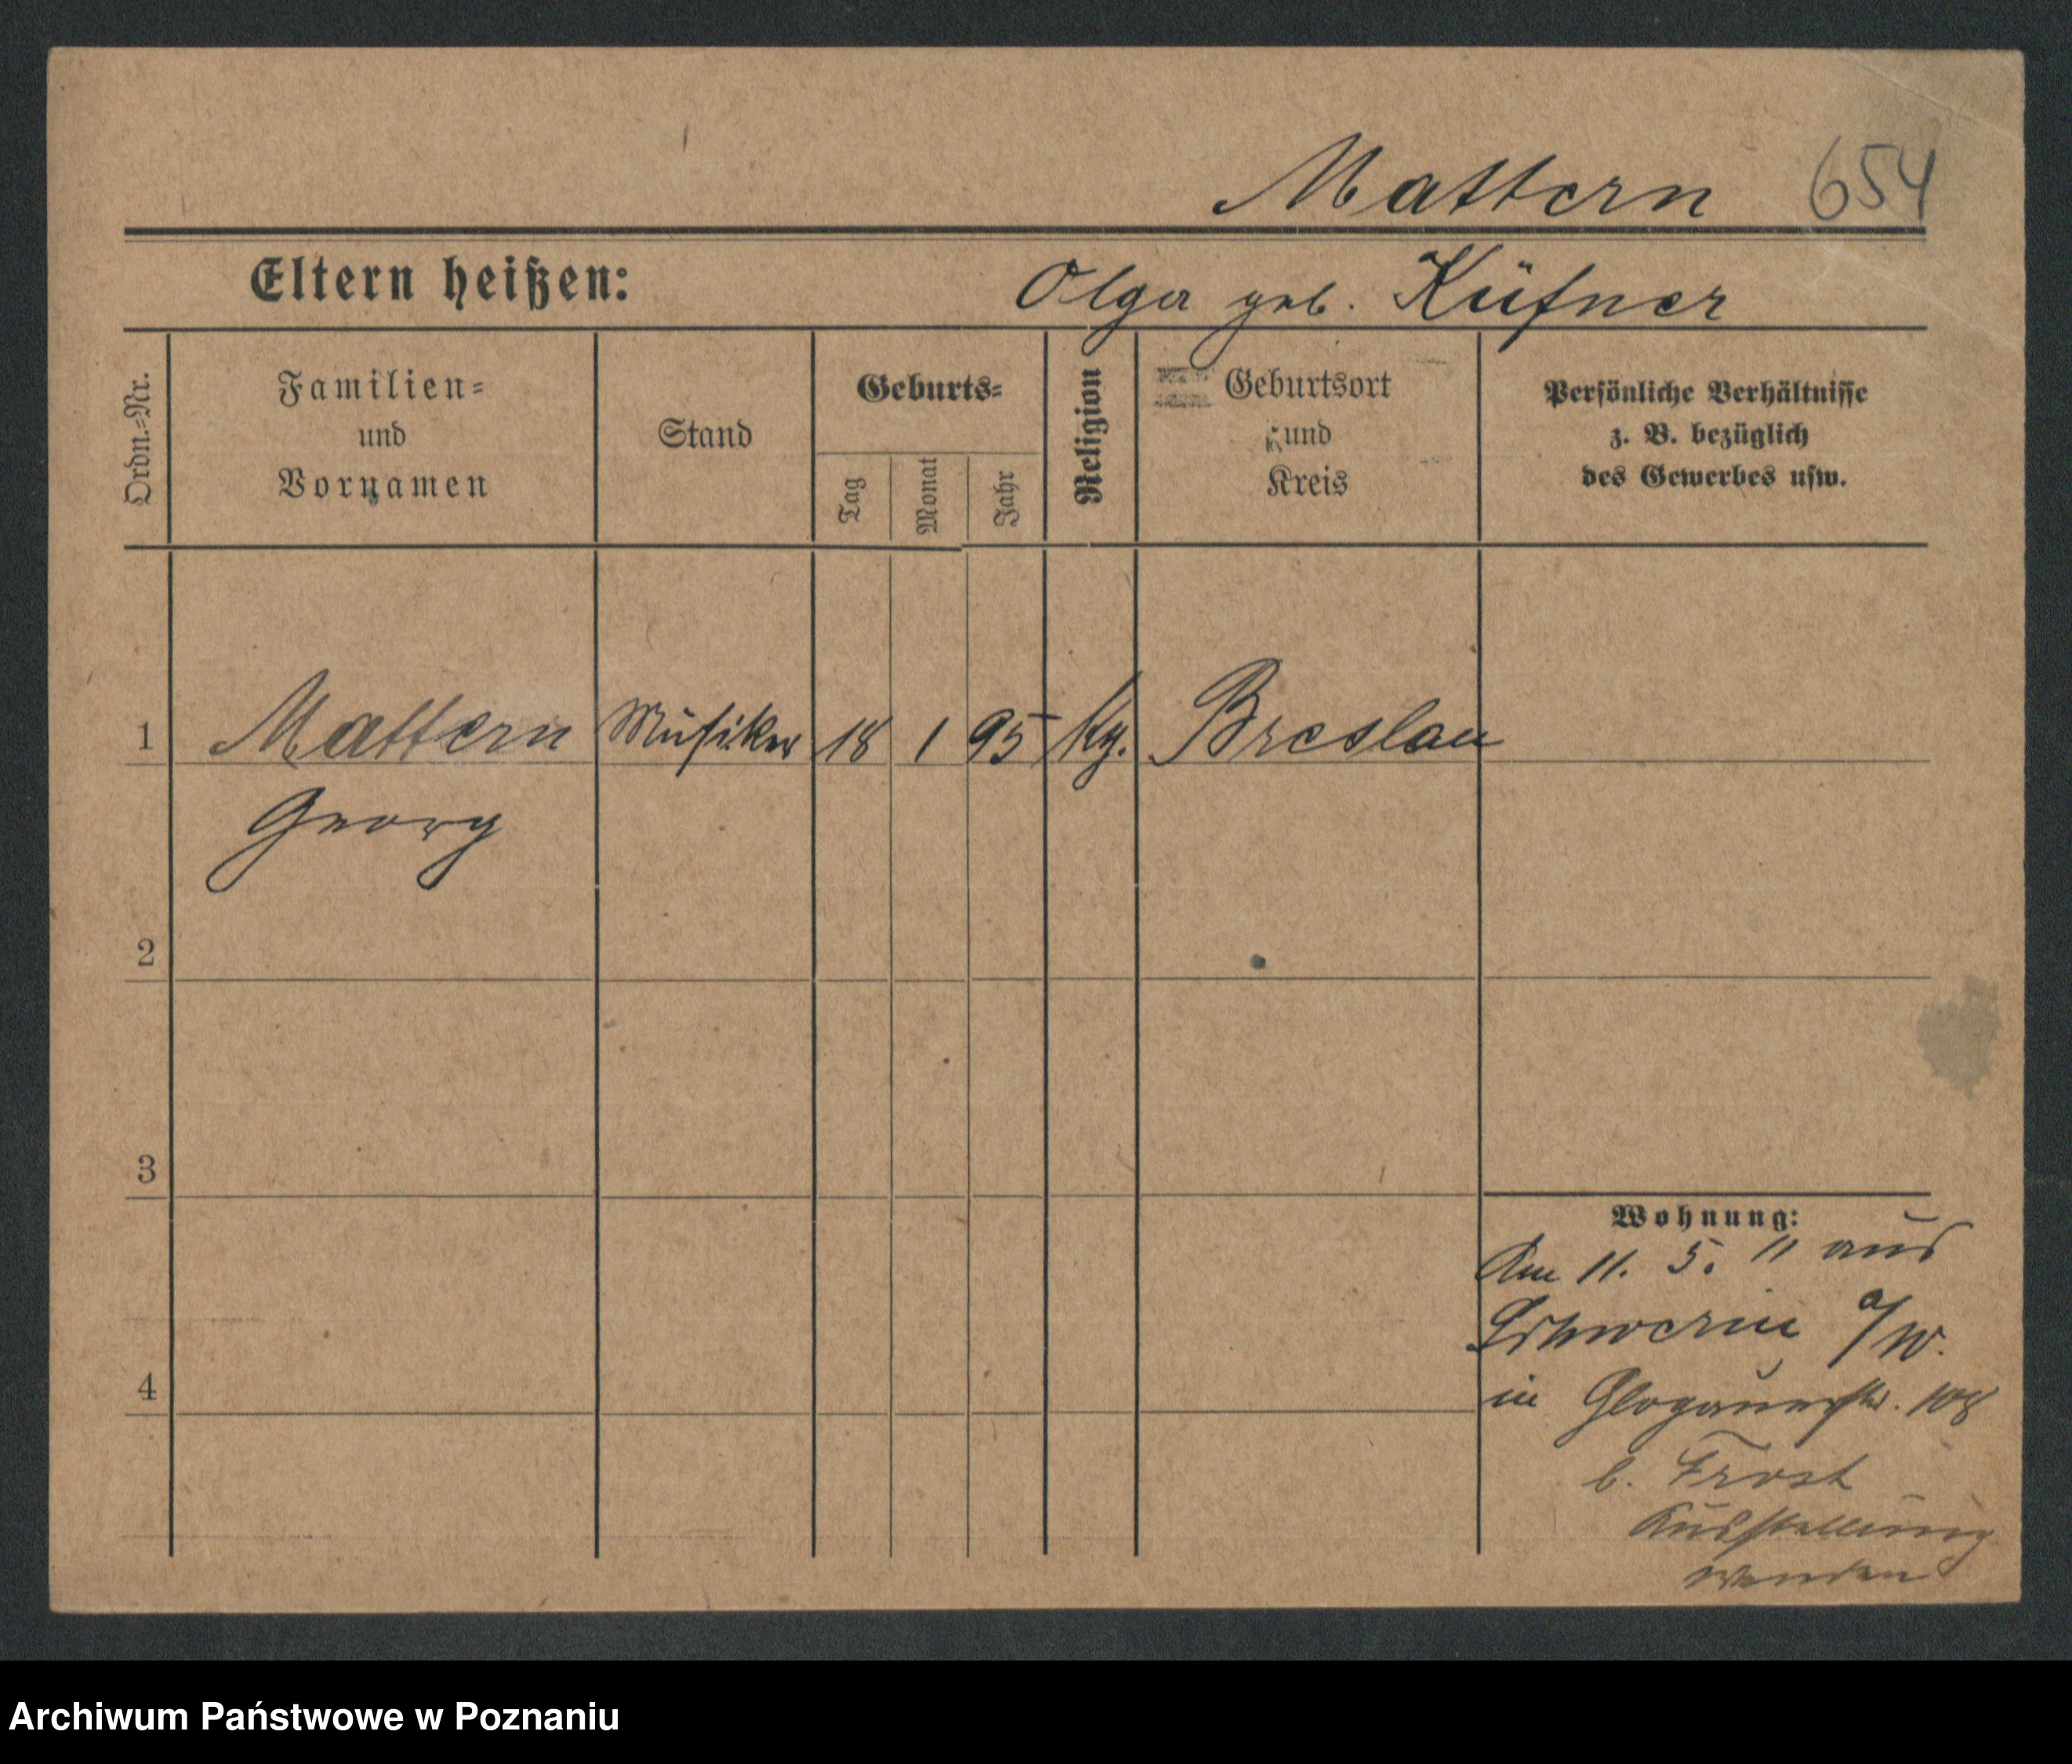 Mattern 654
Eltern heißen: Olga geb. Küfner
Ordn.=Nr.
Familien=
und
Vornamen
Stand
Geburts=
Tag
Monat
Jahr
Religion
Geburtsort
und
Kreis
Persönliche Verhältnisse
z. B. bezüglich
des Gewerbes usw.
1 Mattern Musiker 18 1 95 Breslau
Georg
2
3
4
Wohnung:
Am 11. 5. 11 aus
Schwerin a/W.
in Glogauerstr. 108
b. Frost
Ausstellung
wenden
Archiwum Państwowe w Poznaniu